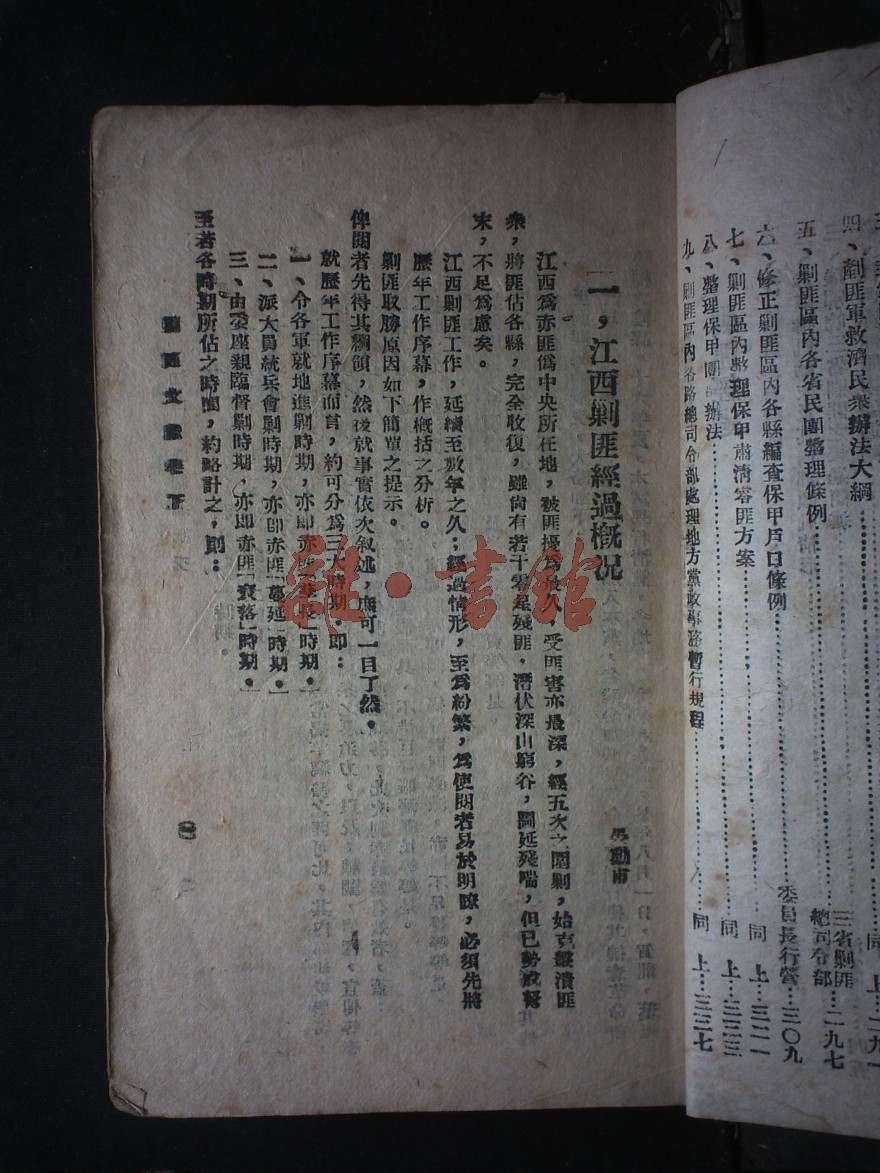 四、剿匪軍救濟民衆辦法大綱……同 上…二九一
五、剿匪區內各省民團整理條例……三省剿匪總司令部…二九七
六、修正剿匪區內各縣編查保甲戶口條例……委員長行營…三〇九
七、剿匪區內整理保甲肅清零匪方案……同 上…三二一
八、整理保甲團辦法……同 上…三二三
九、剿匪區內各路總司令部處理地方黨政事務暫行規程……同 上…三三七
江西剿匪經過概况
江西爲赤匪僞中央所在地，被匪擾爲最久，受匪害亦最深，經五次之圍剿，始克擊潰匪
衆，將匪佔各縣，完全收復，雖尙有若干零星殘匪，潛伏深山窮谷，圖延殘喘，但已勢成弩
末，不足爲慮矣。
江西剿匪工作，延續至數年之久；經過情形，至爲紛繁，爲使閱者易於明瞭，必須先將
歷年工作序幕，作概括之分析。
剿匪取勝原因如下簡單之提示。
俾閱者先得其綱領，然後就事實依次叙述，庶可一目了然。
就歷年工作序幕而言，約可分爲三大時期。即：
一、令各軍就地進剿時期，亦即赤匪「 長」時期。
二、派大員統兵會剿時期，亦即赤匪「蔓延」時期。
三、由委座親臨督剿時期，亦即赤匪「衰落」時期。
至若各時期所佔之時間，約略計之，則：
雜·書館